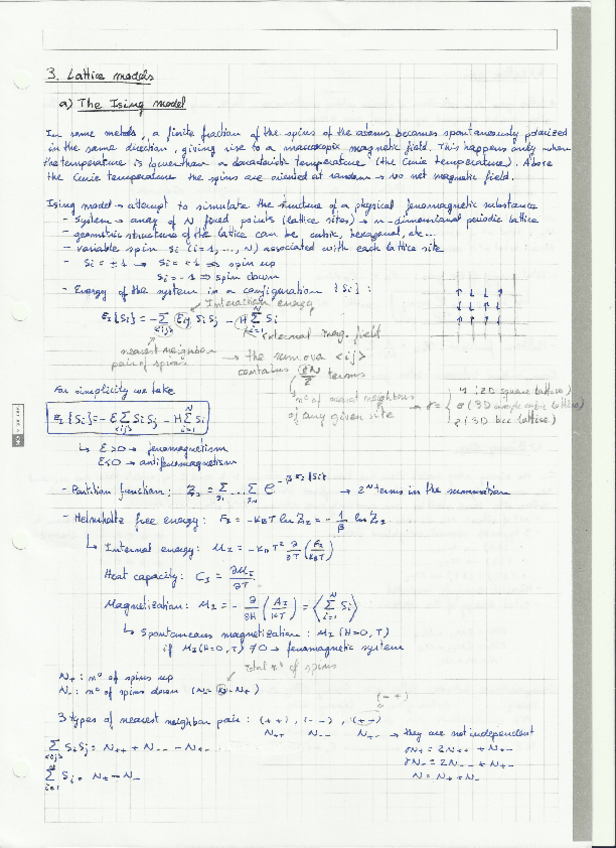 3. Lattice models
a) The Ising model
In some metals, a finite fraction of the spins of the atoms becomes spontaneously polarized
in the same direction, giving rise to a macroscopic magnetic field. This happens only when
the temperature is lower than a characteristic temperature (the Curie temperature). Above
the Curie temperature the spins are oriented at random → no net magnetic field.
Ising model → attempt to simulate the structure of a physical ferromagnetic substance
- System → array of N fixed points (lattice sites) → n-dimensional periodic lattice
- geometric structure of the lattice can be cubic, hexagonal, etc...
- variable spin Si (i=1,..., N) associated with each lattice site
- Si = ±1 → Si = +1 ⇒ spin up
Si = -1 ⇒ spin down
- Energy of the system in a configuration {Si}:
Interaction energy
E_I{Si} = -Σ_<ij> Eij Si Sj - H Σ_{i=1}^N Si
external mag. field
nearest neighbor → the sum over <ij>
pair of spins contains (γN/2) terms
nº of nearest neighbors → γ = { 4 (2D square lattice)
of any given site 6 (3D simple cubic lattice)
8 (3D bcc lattice)
For simplicity we take
E_I{Si} = -E Σ_<ij> Si Sj - H Σ_{i=1}^N Si
↳ E>0 → ferromagnetism
E<0 → antiferromagnetism
- Partition function: Z_I = Σ_{s1} ... Σ_{sN} e^{-β E_I{Si}} → 2^N terms in the summation
- Helmholtz free energy: F_I = -K_B T ln Z_I = -1/β ln Z_I
↳ Internal energy: U_I = -K_B T² ∂/∂T (F_I/K_B T)
Heat capacity: C_I = ∂U_I/∂T
Magnetization: M_I = -∂/∂H (A_I/KT) = <Σ_{i=1}^N Si>
↳ Spontaneous magnetization: M_I (H=0, T)
if M_I (H=0, T) ≠ 0 → ferromagnetic system
total nº of spins
N+: nº of spins up
N-: nº of spins down (N- = N - N+)
(- +)
3 types of nearest neighbor pair: (+ +), (- -), (+ -)
N++ N-- N+- → they are not independent
Σ_<ij> Si Sj = N++ + N-- - N+- γN+ = 2N++ + N+-
γN- = 2N-- + N+-
Σ_{i=1}^N Si = N+ - N- N = N+ + N-